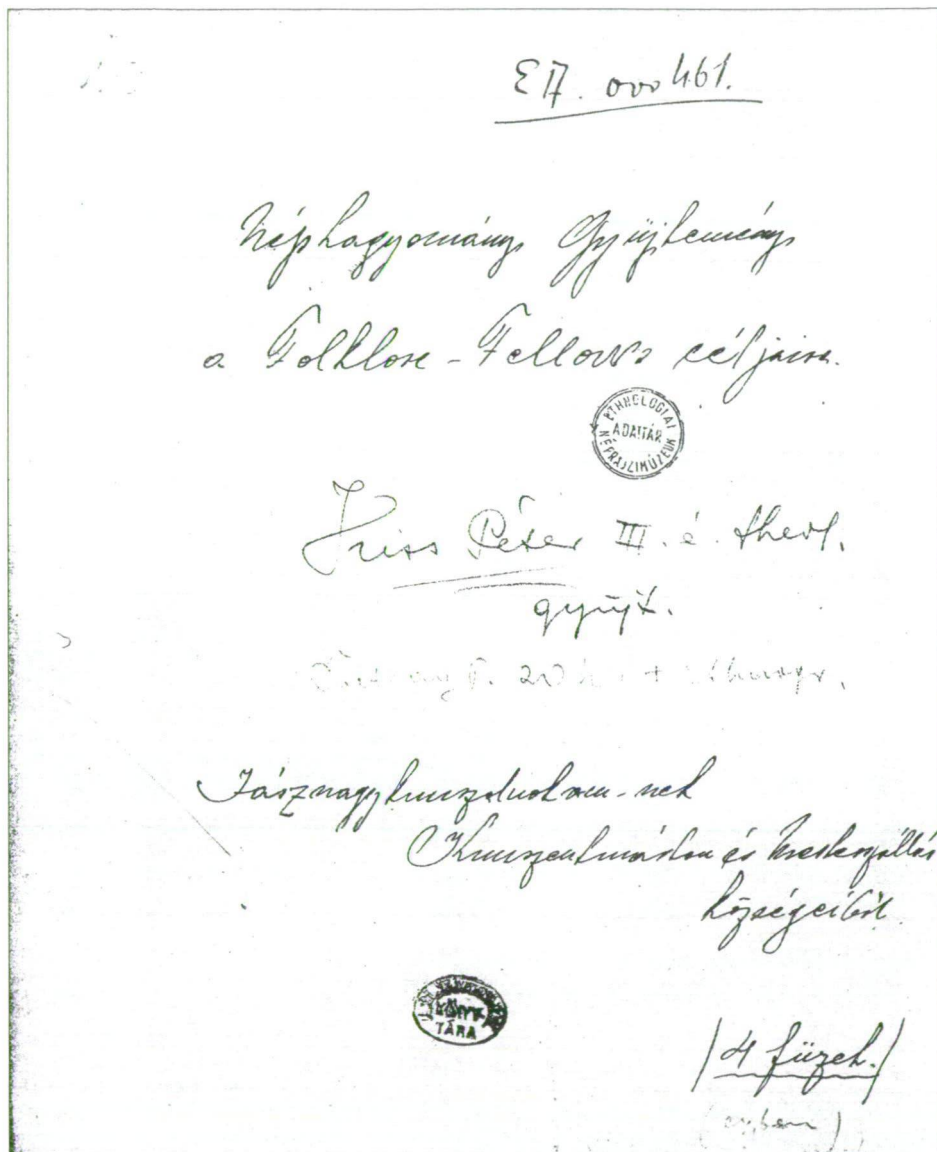 EA. 000461.
Néphagyomány Gyűjtemény
a Folklore-Fellows céljaira.
ETHNOLOGIAI
ADATTÁR
NÉPRAJZI MÚZEUM
Kiss Péter III. é. theol.
gyűjt.
Jásznagykunszolnokvm-nek
Kunszentmárton és Mesterszállás
községeiből.
KÖNYV-
TÁRA
/4 füzet./
(egyben)